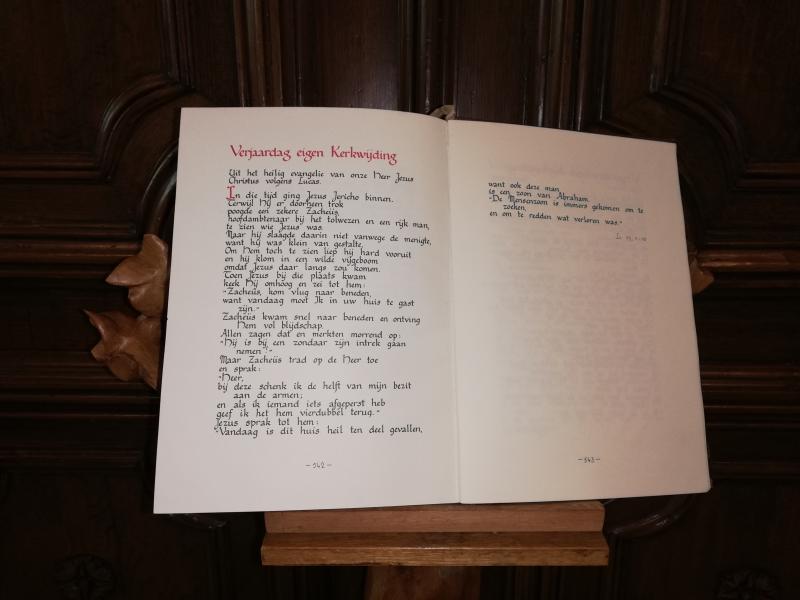 Verjaardag eigen Kerkwijding
Uit het heilig evangelie van onze Heer Jezus
Christus volgens Lucas.
In die tijd ging Jezus Jericho binnen.
Terwijl Hij er doorheen trok
poogde een zekere Zacheüs,
hoofdambtenaar bij het tolwezen en een rijk man,
te zien wie Jezus was.
Maar hij slaagde daarin niet vanwege de menigte,
want hij was klein van gestalte.
Om Hem toch te zien liep hij hard vooruit
en hij klom in een wilde vijgeboom
omdat Jezus daar langs zou komen.
Toen Jezus bij die plaats kwam
keek Hij omhoog en zei tot hem:
"Zacheüs, kom vlug naar beneden,
want vandaag moet Ik in uw huis te gast
zijn."
Zacheüs kwam snel naar beneden en ontving
Hem vol blijdschap.
Allen zagen dat en merkten morrend op:
"Hij is bij een zondaar zijn intrek gaan
nemen!"
Maar Zacheüs trad op de Heer toe
en sprak:
"Heer,
bij deze schenk ik de helft van mijn bezit
aan de armen;
en als ik iemand iets afgeperst heb
geef ik het hem vierdubbel terug."
Jezus sprak tot hem:
"Vandaag is dit huis heil ten deel gevallen,
-542-
want ook deze man
is een zoon van Abraham.
"De Mensenzoon is immers gekomen om te
zoeken,
en om te redden wat verloren was."
-543-